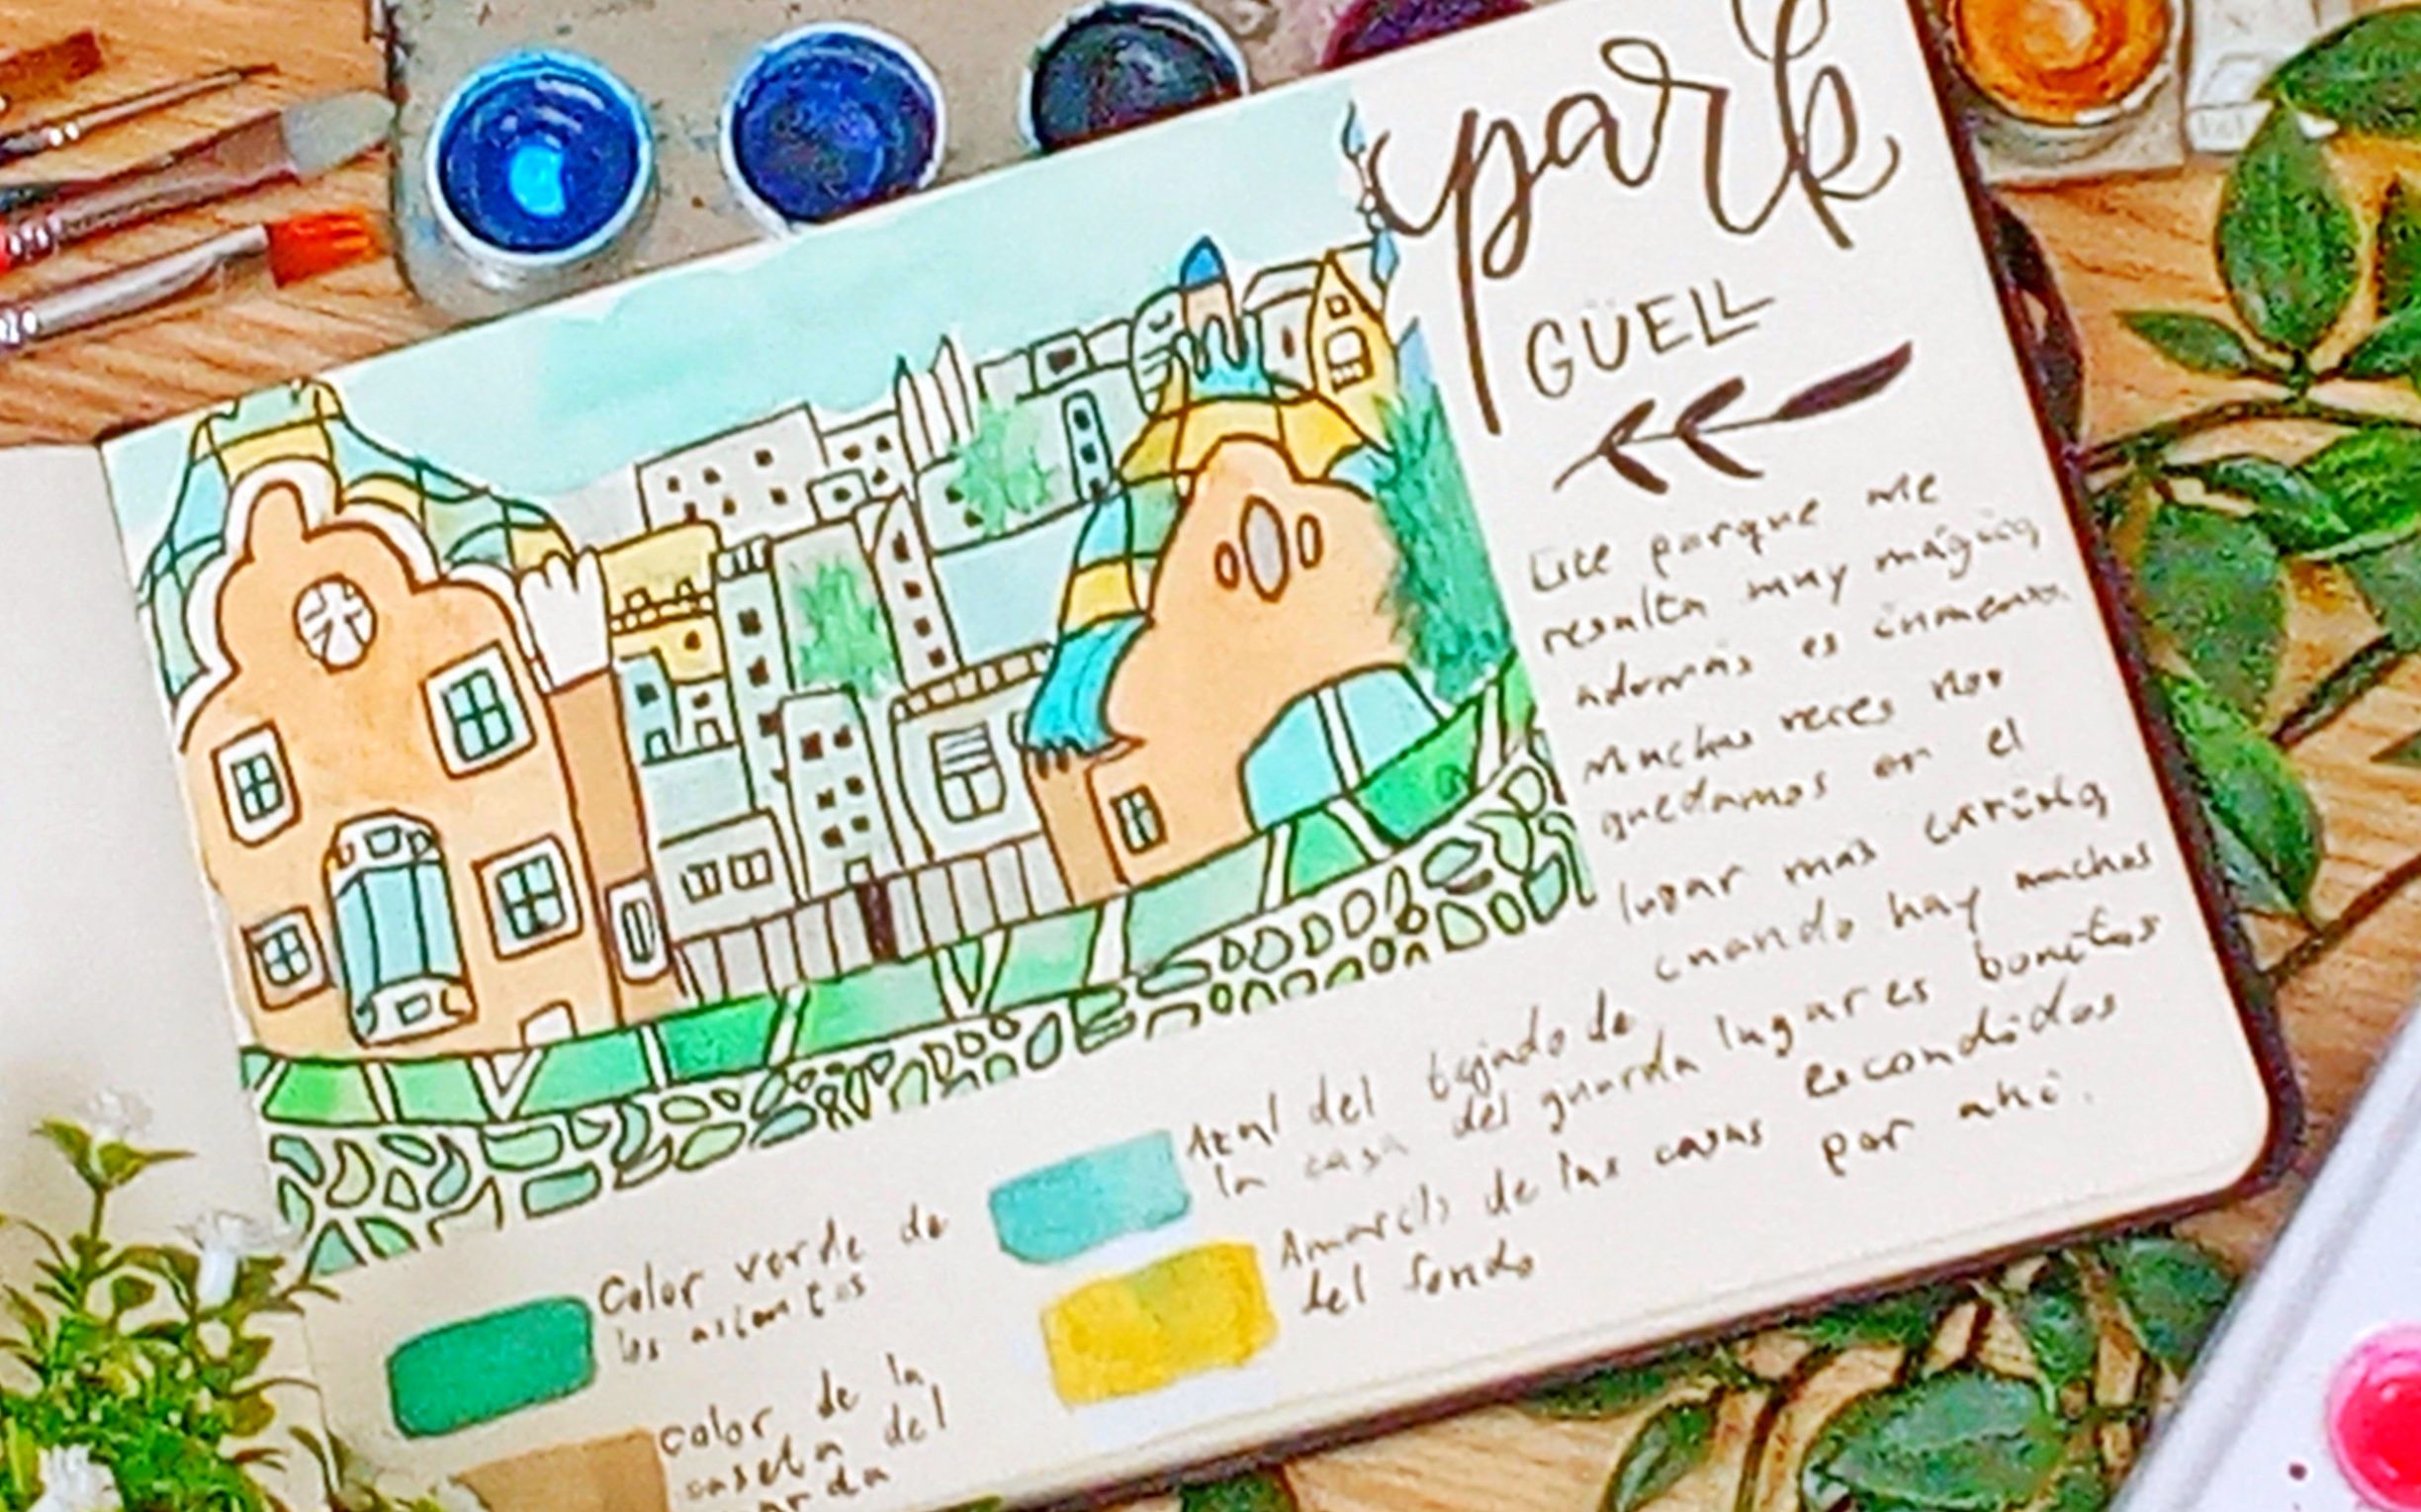 park
GÜELL
Este parque me
resulta muy mágico
además es inmenso
Muchas veces nos
quedamos en el
lugar mas turístico
cuando hay muchos
lugares bonitos
escondidos
por ahí.
Azul del tejado de
la casa del guarda
Amarillo de las casas
del fondo
Color verde de
los asientos
color de la
caseta del
guarda